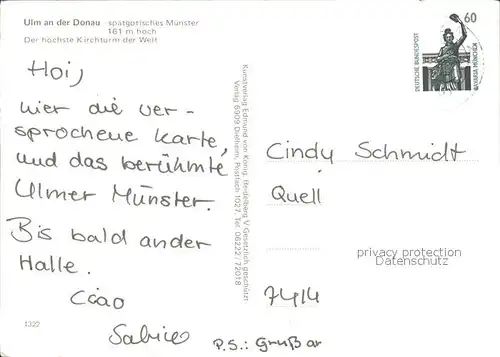 Ulm an der Donau spätgotisches Münster
161 m hoch
Der höchste Kirchturm der Welt
Hoi,
hier die ver-
sprochene Karte,
und das berühmte
Ulmer Münster.
Bis bald an der
Halle.
Ciao
Sabine
1322
P.S.: Gruß an
Kunstverlag Edmund von König, Heidelberg V Gesetzlich geschützt
Verlag 6909 Dielheim, Postfach 1027, Tel. 06222/72018
60
DEUTSCHE BUNDESPOST
BAVARIA MÜNCHEN
Cindy Schmidt
Quell
7414
privacy protection
Datenschutz